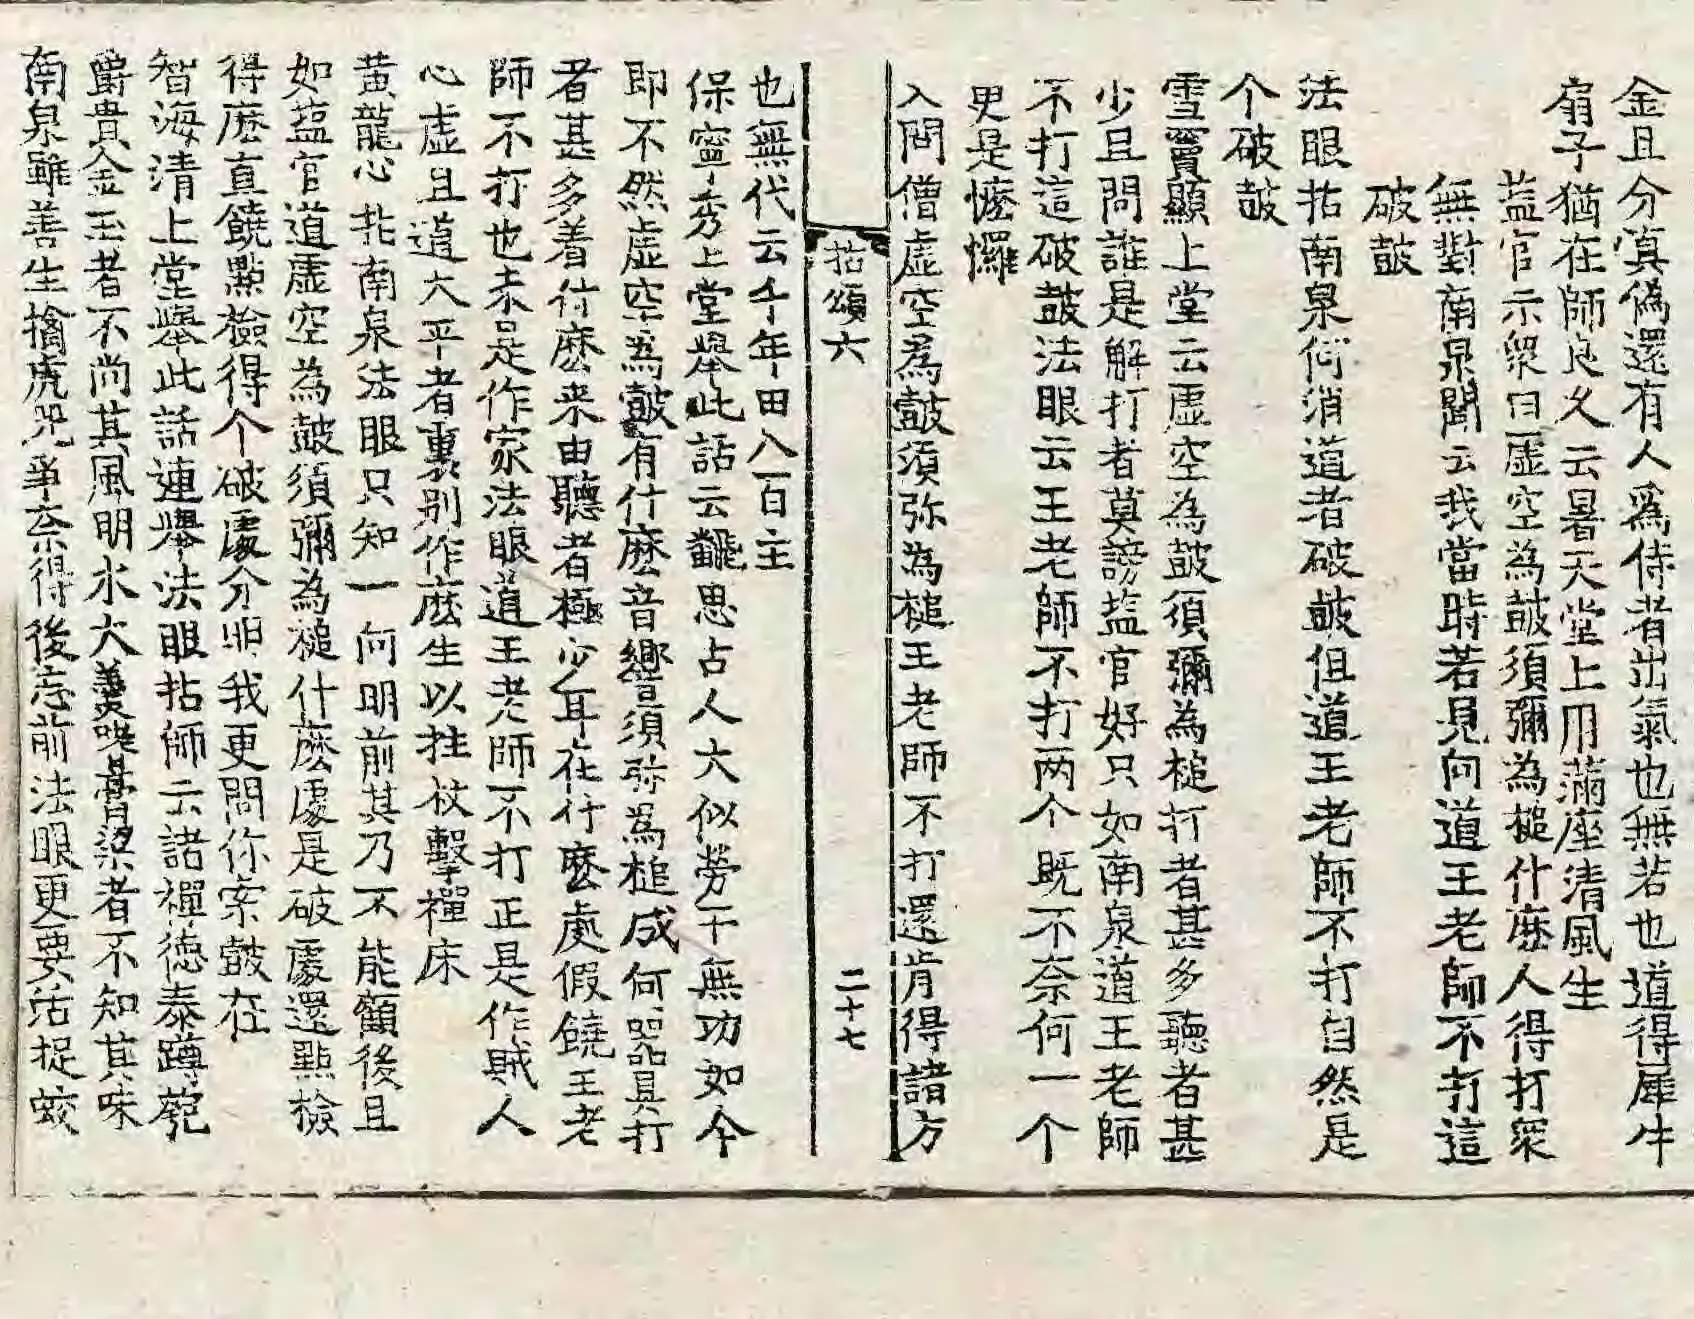 金且分眞偽還有人爲侍者出氣也無若也道得犀牛
扇子猶在師良久云暑天堂上用滿座淸風生
盐官示衆曰虛空為鼓須彌為槌什麽人得打衆
無對南泉聞云我當時若見向道王老師不打這
破鼓
法眼拈南泉何消道者破鼓但道王老師不打自然是
个破鼓
雪竇顯上堂云虛空為鼓須彌為槌打者甚多聽者甚
少且問誰是解打者莫謗盐官好只如南泉道王老師
不打這破鼓法眼云王老師不打两个既不奈何一个
更是懡㦬
入問僧虛空為鼓須弥為槌王老師不打還肯得諸方
拈頌六
二十七
也無代云千年田八百主
保寧秀上堂舉此話云翻思古人大似勞干無功如今
即不然虛空為鼓有什麽音響須弥為槌成何器具打
者甚多着什麽来由聽者極少耳在什麽處假饒王老
師不打也未是作家法眼道王老師不打正是作賊人
心虛且道大平者裏别作麽生以拄杖擊禪床
黃龍心拈南泉法眼只知一向明前其乃不能顧後且
如盐官道虛空為鼓須彌為槌什麽處是破處還點檢
得麽直饒點檢得个破處分明我更問你案鼓在
智海清上堂舉此話連舉法眼拈師云諸禪德泰蹲㼎
爵貴金玉者不尚其風明水大羹哾膏粱者不知其味
南泉雖善生擒虎兕爭奈得後忘前法眼更要活捉蛟